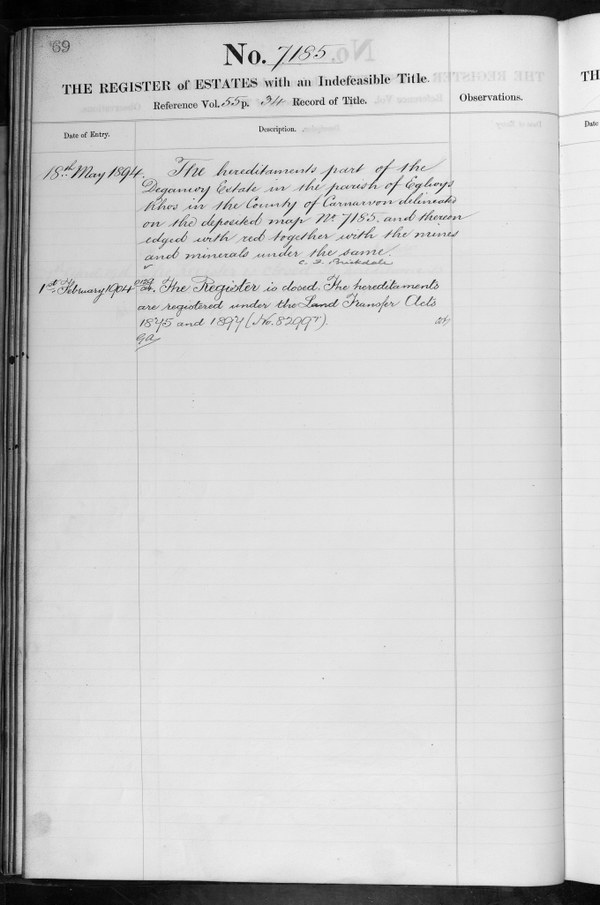 69
No. 7185
THE REGISTER of ESTATES with an Indefeasible Title.
Reference Vol. 55 p. 34 Record of Title.
Observations.
Date of Entry.
Description.
18th May 1894.
The hereditaments part of the
Deganwy Estate in the parish of Eglwys
Rhos in the County of Carnarvon delineated
on the deposited map No 7185. and thereon
edged with red together with the mines
and minerals under the same.
C. F. Brickdale
1st February 1904
The Register is closed. The hereditaments
are registered under the Land Transfer Acts
1875 and 1897 (No. 82997).
TH
Date